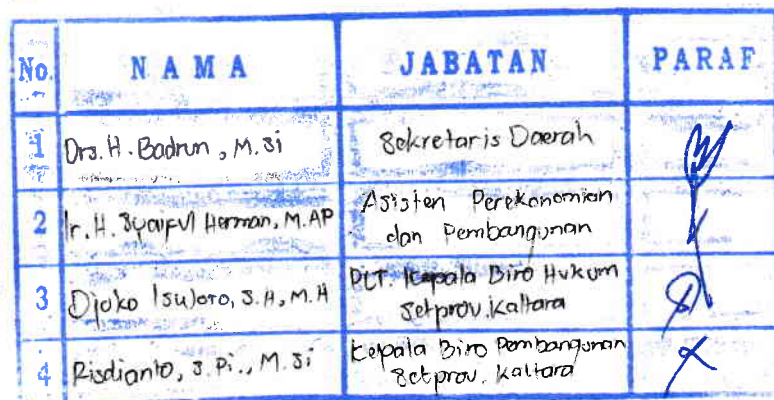 No. NAMA JABATAN PARAF
1 Drs. H. Badrun, M.Si Sekretaris Daerah
2 Ir. H. Syaiful Herman, M.AP Asisten Perekonomian
dan Pembangunan
3 Djoko Isworo, S.H, M.H PLT. Kepala Biro Hukum
Setprov. Kaltara
4 Risdianto, S.Pi., M.Si Kepala Biro Pembangunan
Setprov. Kaltara